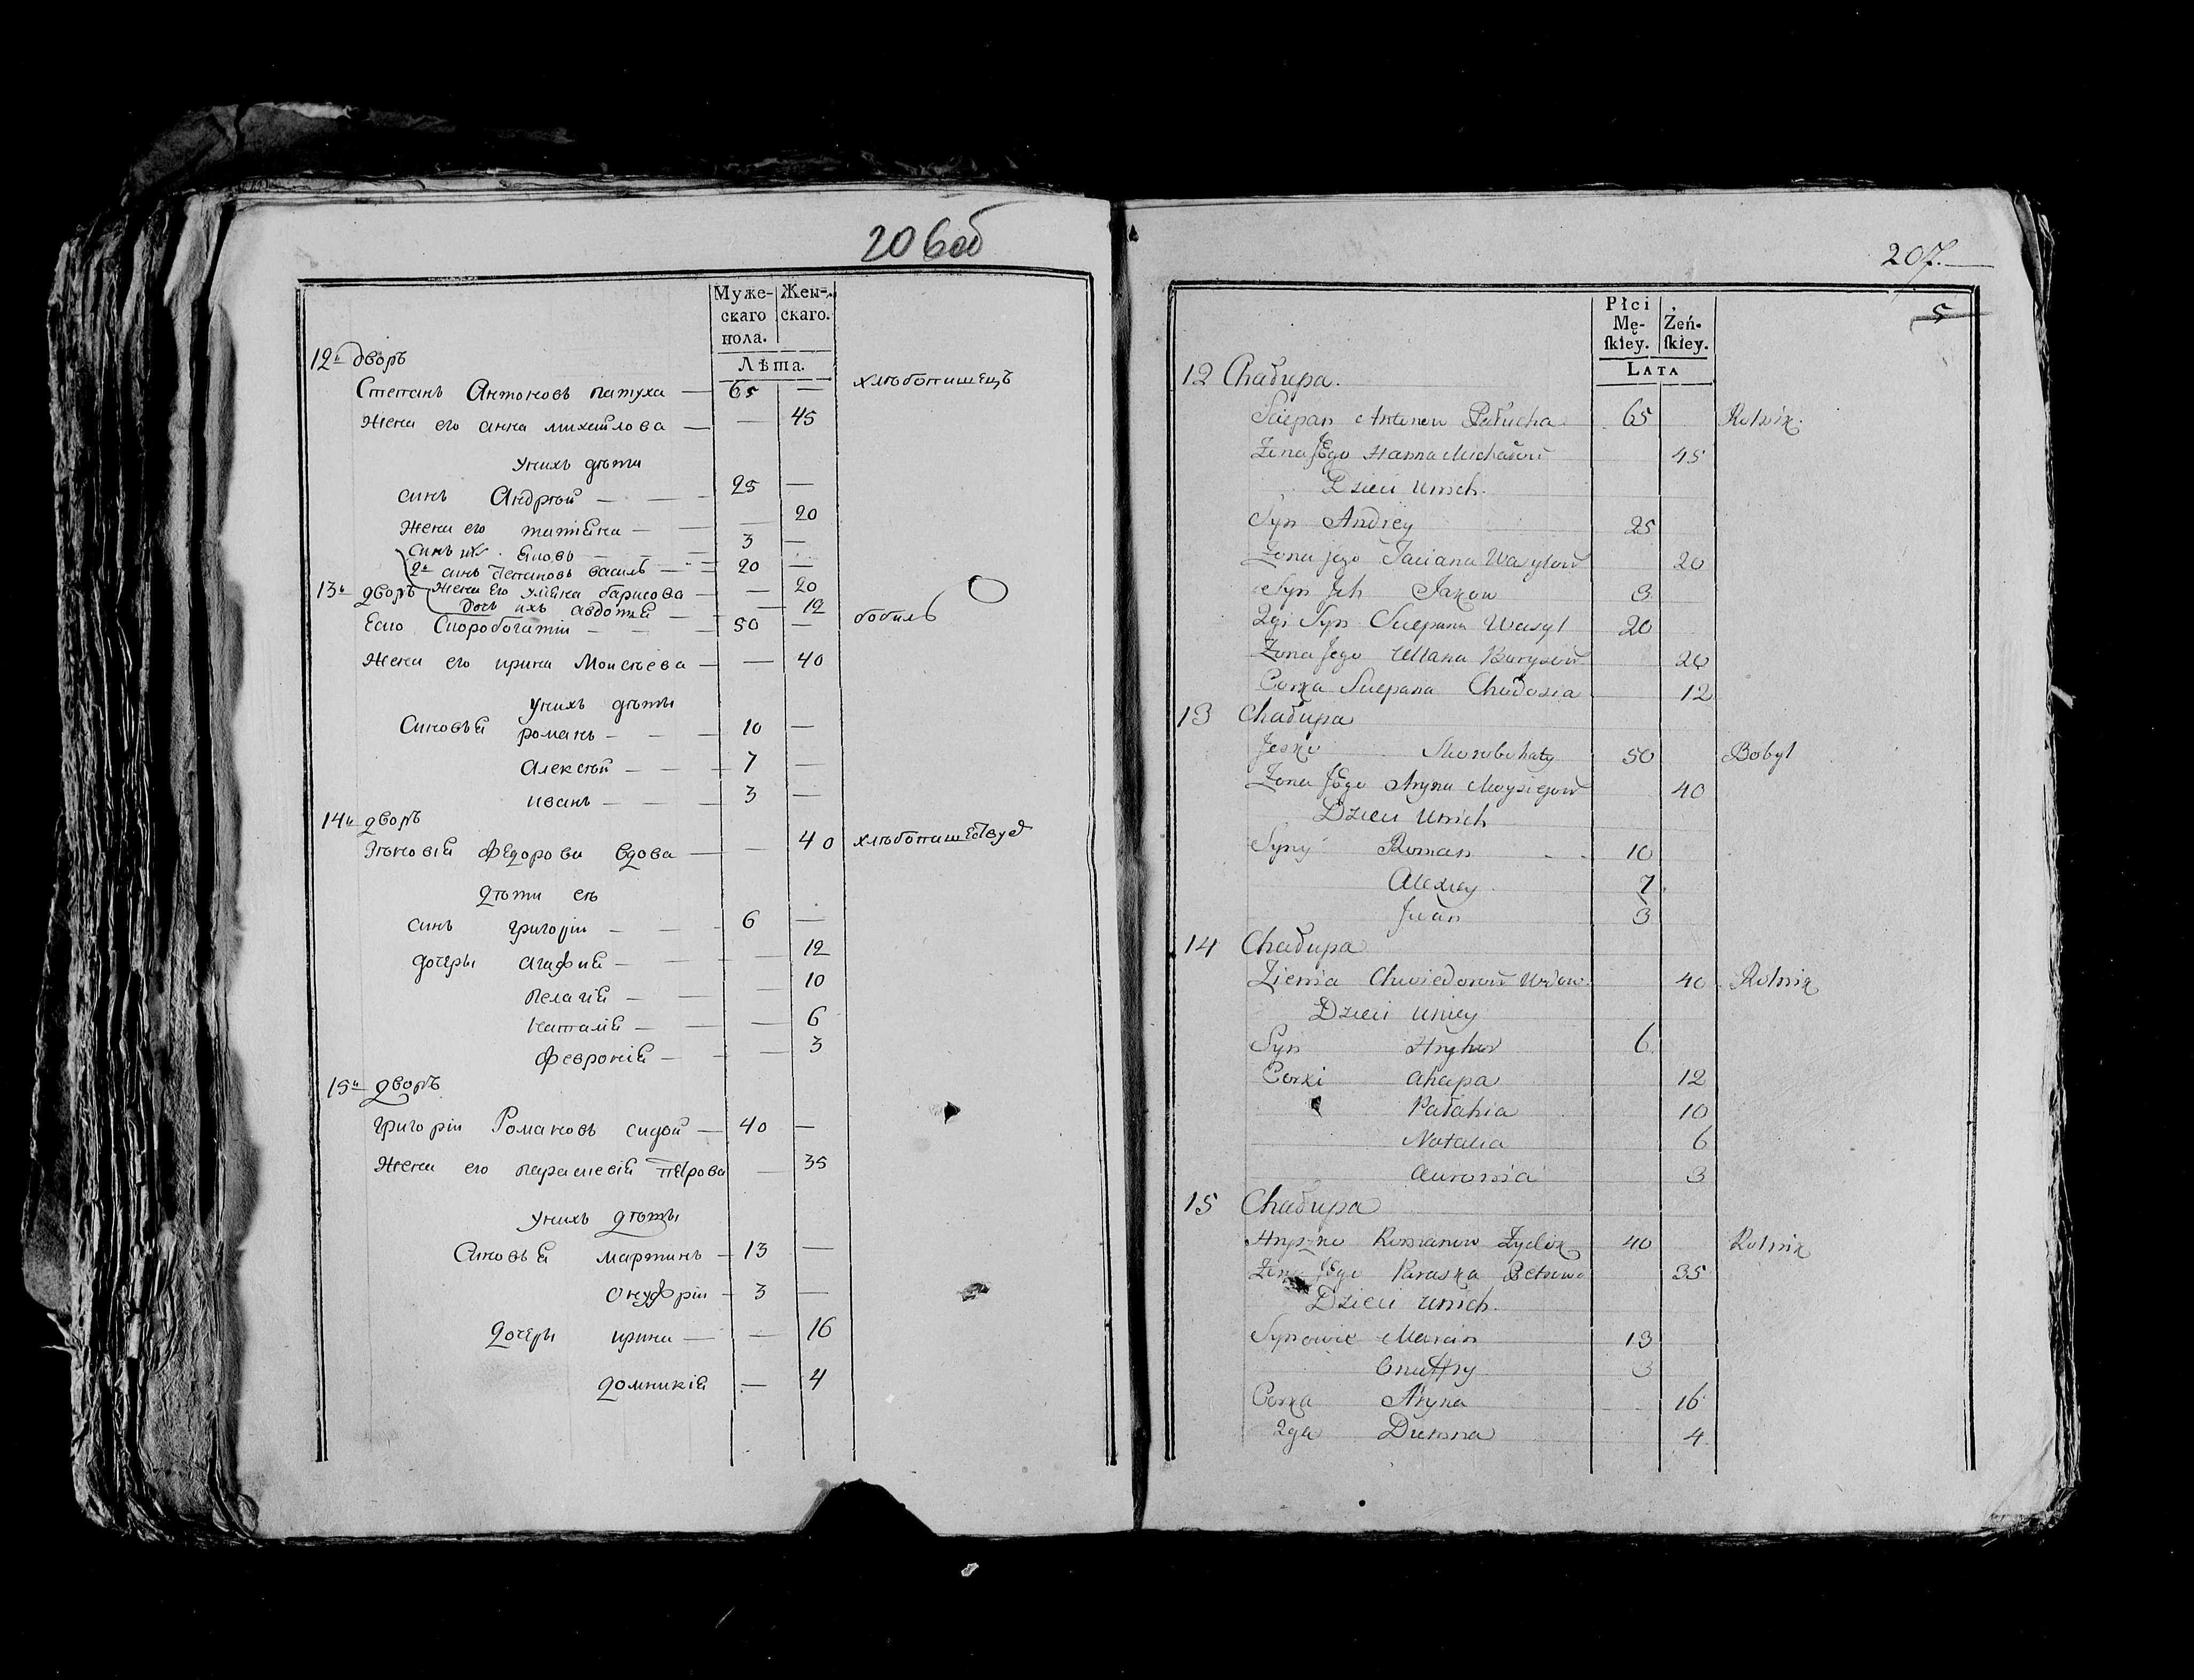 206об
Муже- Жен-
скаго скаго.
пола.
Лѣта.
12й дворъ
Степанъ Антоновъ патуха — 65 — хлѣбопашецъ
жена его анна михайлова — — 45
Унихъ дѣти
синъ Андрѣй — — 25 —
жена его татіяна — — — 20
синъ их яковъ — — 3 —
2й синъ Степановъ василь — 20 —
13й дворъ жена его уляна барисова — — 20
дочь ихъ авдотя — — 12
Еско Скоробогатіи — — 50 — бобиль
жена его ирина Моисѣева — — 40
унихъ дѣты
Синовья романъ — — 10 —
Алексѣй — — 7 —
иванъ — — 3 —
14й дворъ
Зѣновія федорова вдова — — 40 хлѣбопашествуе
дѣти еѣ
синъ григоріи — — 6 —
дочеры агафия — — — 12
пелагія — — — 10
наталія — — — 6
февронія — — 3
15й дворъ
григоріи Романовъ сидой — 40 —
жена его параскевія петрова — 35
унихъ дѣты
Синовья мартинъ — 13 —
онуфріи — 3 —
дочеры ирина — — 16
домникія — 4
207.
5
Płci
Mę- Żeń-
ſkiey. ſkiey.
LATA
12 Chałupa.
Sciepan Antonow Patucha 65 Rolnik.
Zona Jego Hanna Michałow 45
Dzieci Unich.
Syn Andrey 25
Zona jego Taciana Wasylow 20
Syn Jch Jakow 3
2gi Syn Sciepana Wasyl 20
Zona Jego Ullana Barysow 20
Corka Sciepana Chudosia 12
13 Chałupa
Jesko Skorobohaty 50 Bobyl
Zona Jego Aryna Moysiejow 40
Dzieci Unich
Syny Roman 10
Alexiey 7
Jwan 3
14 Chałupa
Zienia Chwiedorow Wdow. 40 Rolnik
Dzieci Uniey
Syn Hryhor 6
Corki Ahapa 12
Pałahia 10
Natalia 6
Auronia 3
15 Chałupa
Hryszko Romanow 40 Rolnik
Zona Jego Paraska Petrowa 35
Dzieci Unich.
Synowie Marcin 13
Onuffry 3
Corka Aryna 16
2ga Dumna 4